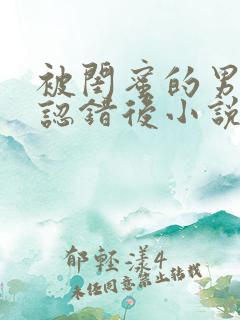 被閨蜜的男
認錯後小說
郁輕漾4
未經同意禁止轉載